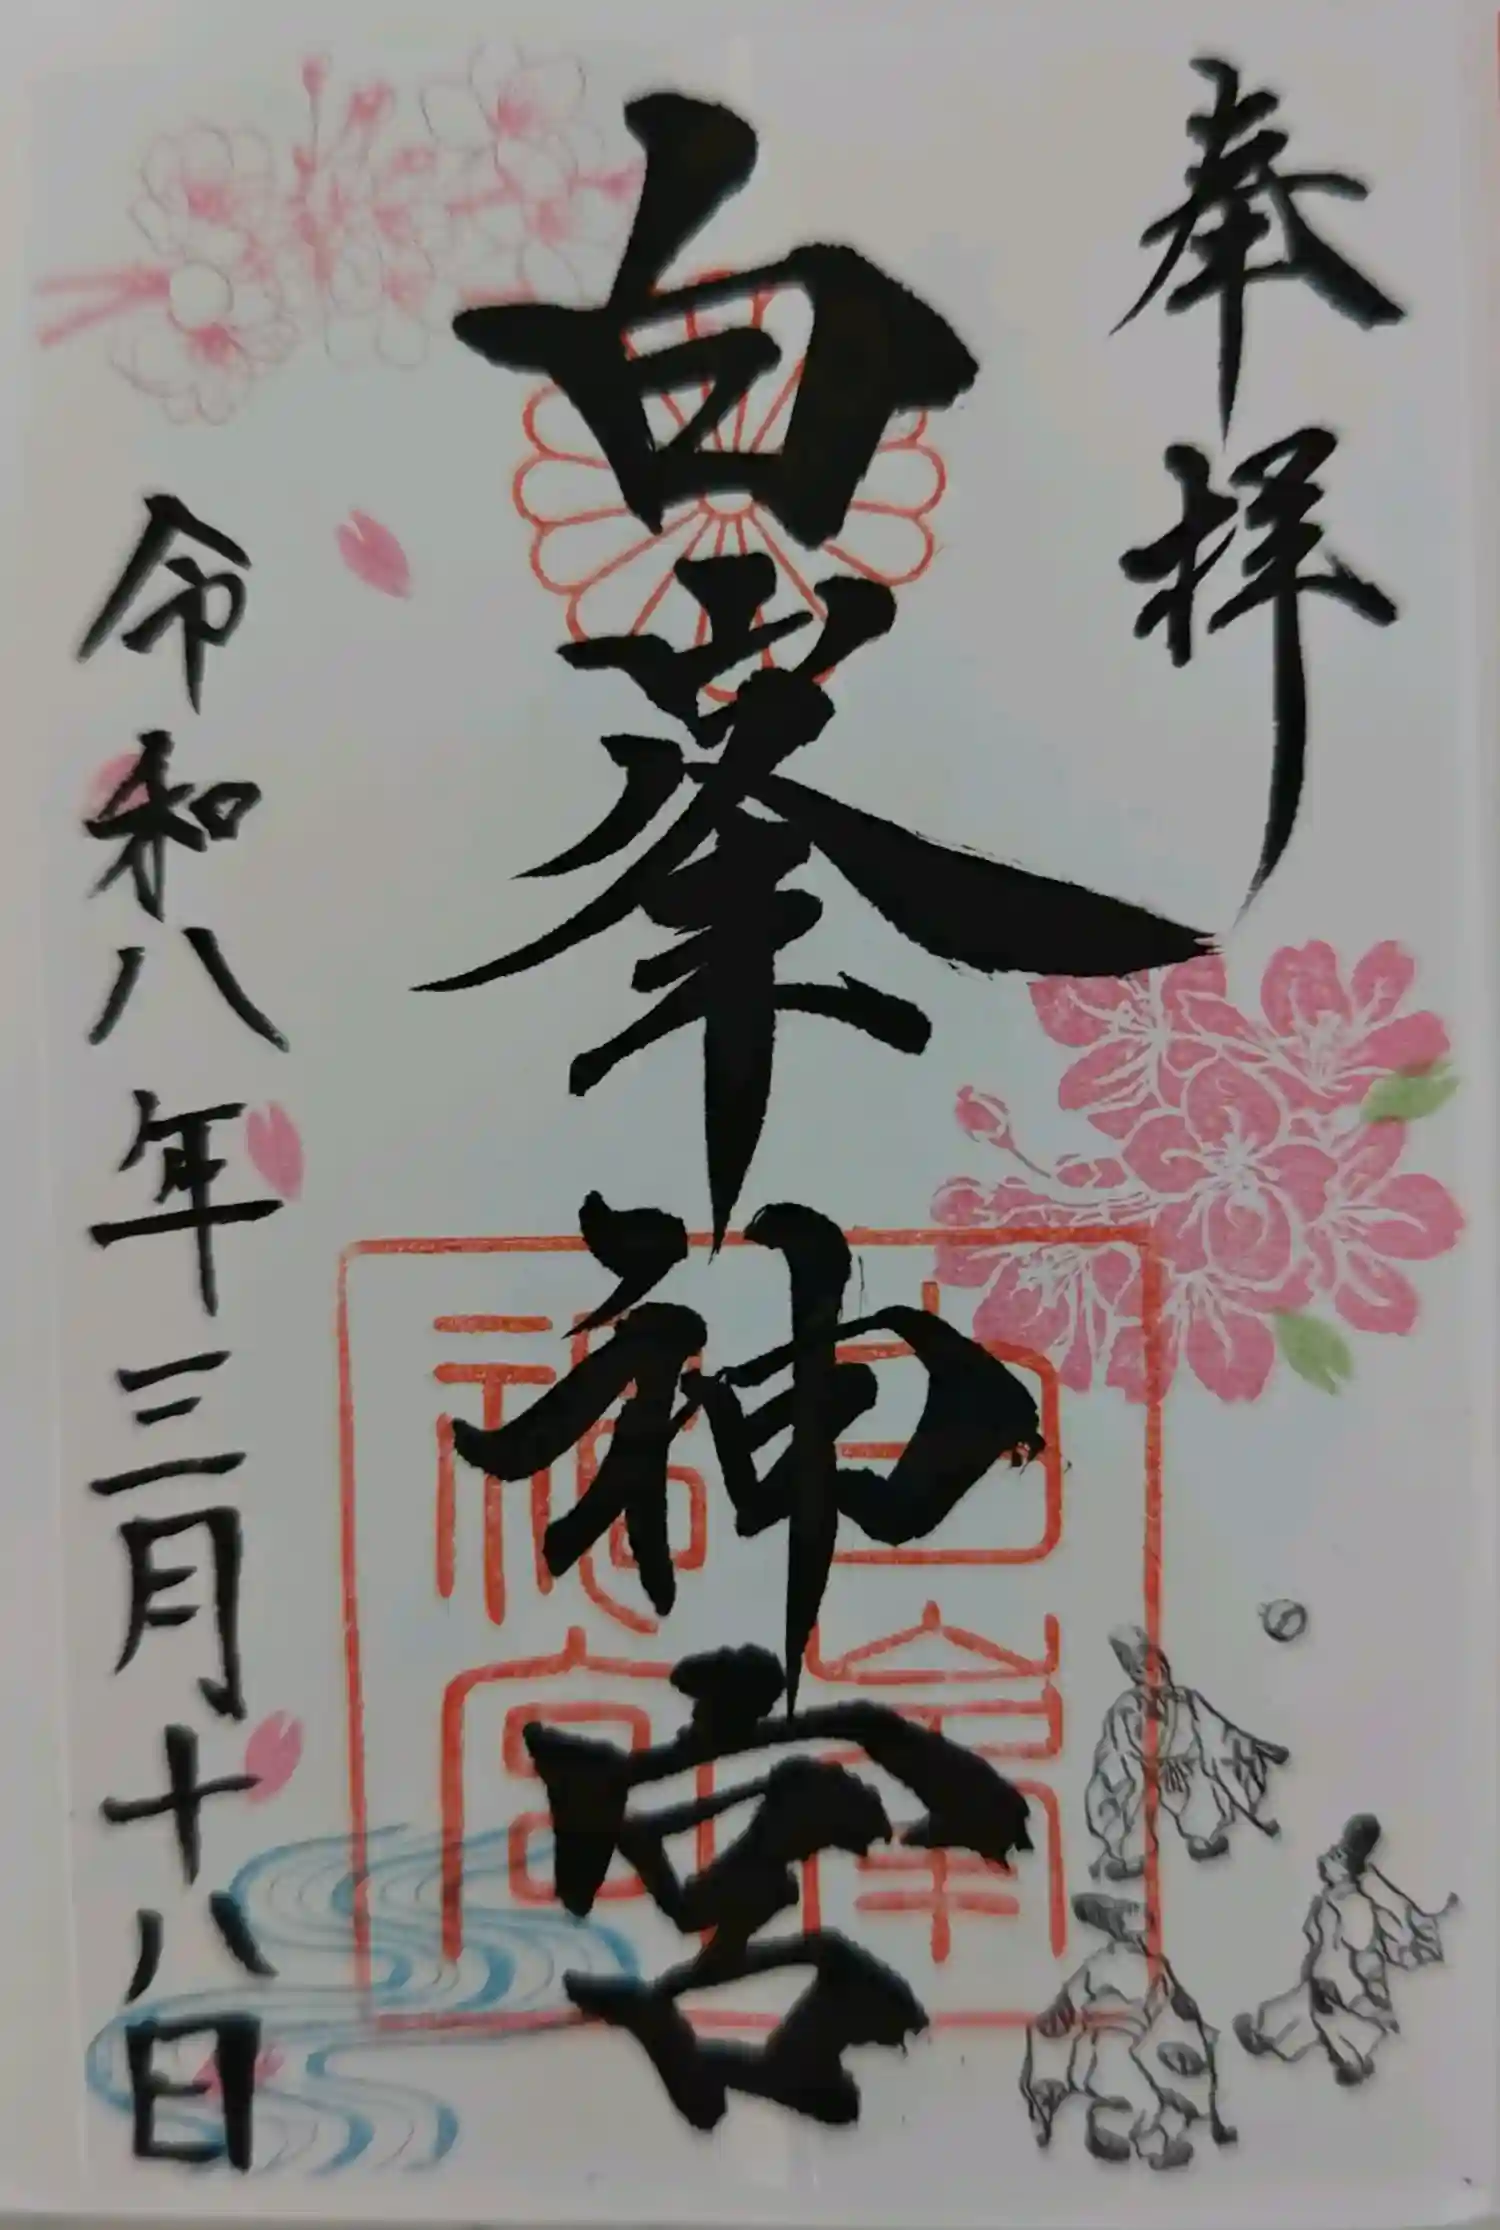 奉拝
白峯神宮
白峯神宮
令和八年三月十八日